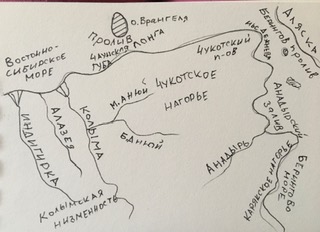 о. Врангеля
Аляска
Берингов пролив
пролив Лонга
Восточно-
Сибирское
море
Чаунская
губа
Чукотский
п-ов
мыс Дежнева
Чукотское
нагорье
М. Анюй
Б. Анюй
Индигирка
Алазея
Колыма
Колымская
низменность
Анадырский
залив
Анадырь
Корякское нагорье
Берингово
море